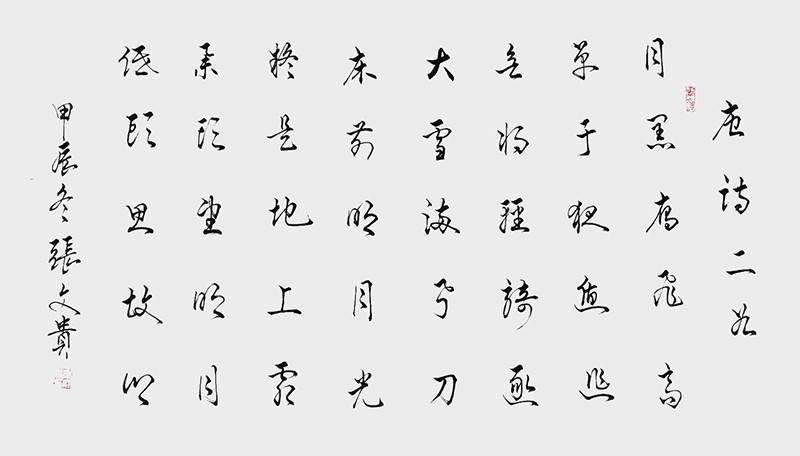 唐詩二首
月黑雁飛高
单于夜遁逃
欲將輕騎逐
大雪滿弓刀
床前明月光
疑是地上霜
舉頭望明月
低頭思故鄉
甲辰冬張文貴